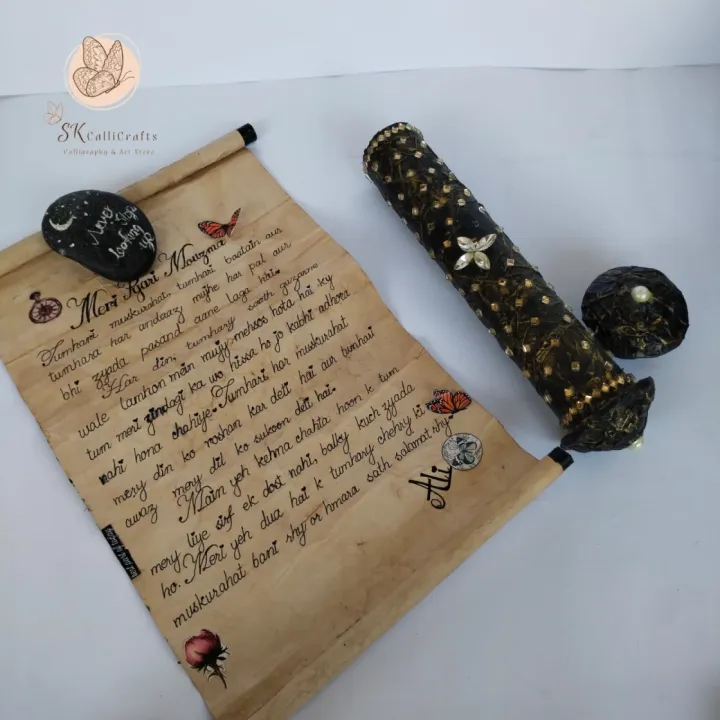 SK CalliCrafts
Calligraphy & Art Store
Never Stop
looking
up
Meri Pyari Mouzma
Tumhari muskurahat, tumhari baatain aur
tumhara har andaaz mujhe har pal aur
bhi zyada pasand aane laga hai.
Har din, tumhary saath guzarne
wale lamhon main mujy mehsos hota hai ky
tum meri zindagi ka wo hissa ho jo kabhi adhora
nahi hona chahiye. Tumhari har muskurahat
mery din ko roshan kar deti hai aur tumhari
awaz mery dil ko sukoon deti hai.
Main yeh kehna chahta hoon k tum
mery liye sirf ek dost nahi, balky kuch zyada
ho. Meri yeh dua hai k tumhary chehry ki
muskurahat bani rhy or hmara sath salamat rhy.
Ali